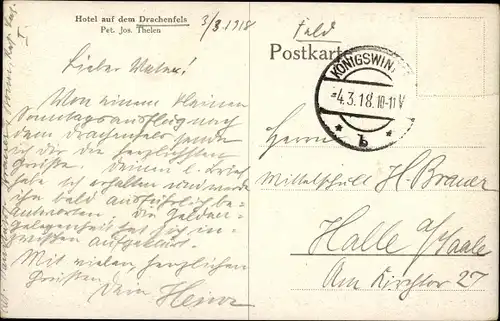 Hotel auf dem Drachenfels
Pet. Jos. Thelen
3/3.1918
Feld
Postkarte
KÖNIGSWIN
-4.3.18.10-11V
* b *
Lieber
Von einem kleinen
Sonntagsausflug nach
dem Drachenfels sende
ich dir die herzlichsten
Grüße. Deinen l. Brief
habe ich erhalten und werde
ihn bald ausführlich be-
antworten. Die
Gelegenheit hat sich in-
zwischen aufgeklärt.
Mit vielen, herzlichen
Grüßen
Dein Heinz
Herrn
Mittelschull. H. Brauer
Halle a/Saale
Am Kirchtor 27